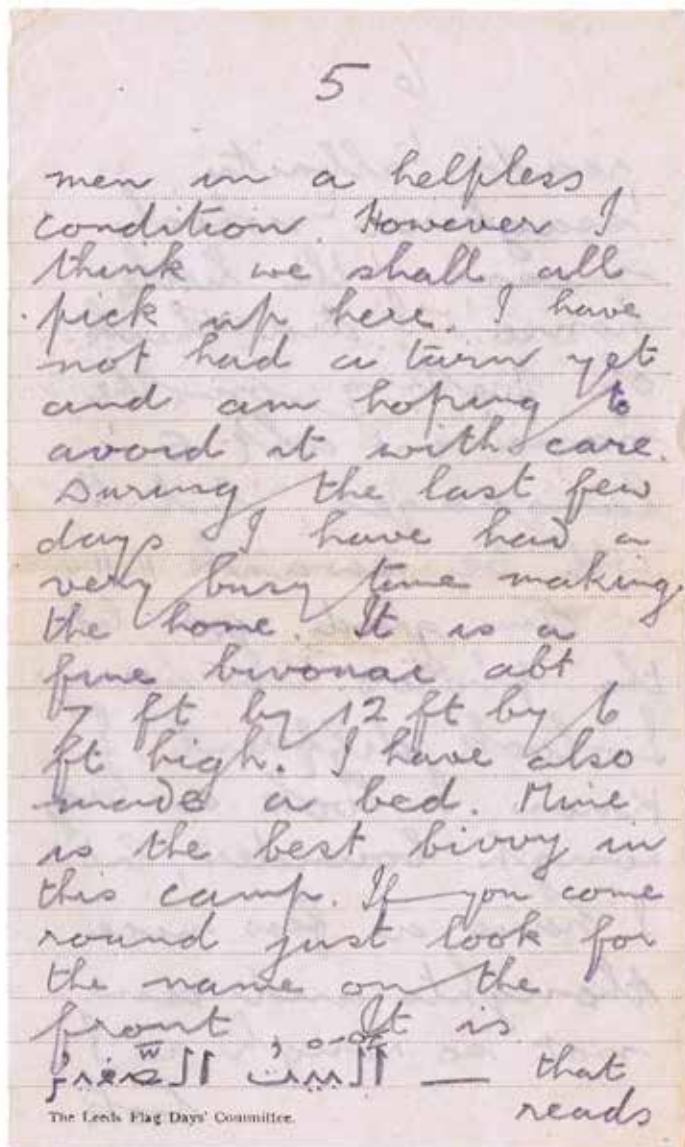 5
men in a helpless
condition. However I
think we shall all
pick up here. I have
not had a turn yet
and am hoping to
avoid it with care.
During the last few
days I have had a
very busy time making
the home. It is a
fine bivouac abt
7 ft by 12 ft by 6
ft high. I have also
made a bed. Mine
is the best bivvy in
this camp. If you come
round just look for
the name on the
front It is
البيت الصغير — that
reads
The Leeds Flag Days' Committee.